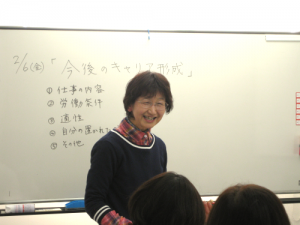 2/6(金)「今後のキャリア形成」
① 仕事の内容
② 労働条件
③ 適性
④ 自分の置かれ
⑤ その他